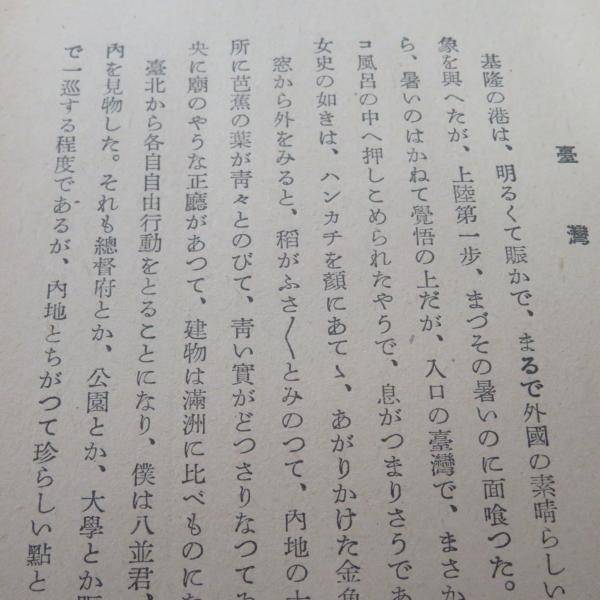 臺灣
基隆の港は、明るくて賑かで、まるで外國の素晴らしい
象を與へたが、上陸第一步、まづその暑いのに面喰つた。
ら、暑いのはかねて覺悟の上だが、入口の臺灣で、まさか
コ風呂の中へ押しこめられたやうで、息がつまりさうであ
女史の如きは、ハンカチを顏にあてゝ、あがりかけた金魚
窓から外をみると、稻がふさ〱とみのつて、內地の
所に芭蕉の葉が靑々とのびて、靑い實がどつさりなつてゐ
央に廟のやうな正廳があつて、建物は滿洲に比べものにな
臺北から各自自由行動をとることになり、僕は八並君、
內を見物した。それも總督府とか、公園とか、大學とか
で一巡する程度であるが、內地とちがつて珍らしい點と